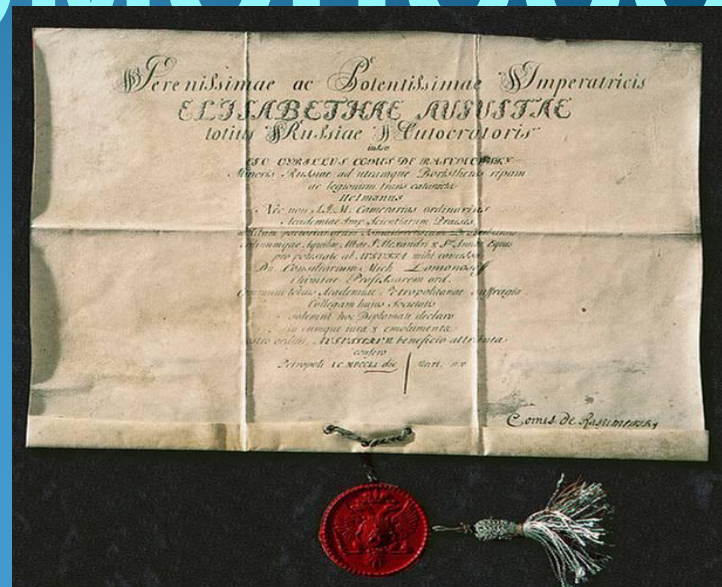 Serenissimae ac Potentissimae Imperatricis
ELISABETHAE AUGUSTAE
totius Russiae Autocratoris
iussu
EGO CYRILLUS COMES DE RASUMOWSKY
Minoris Russiae ad utramque Boristhenis ripam
ac legionum trans cataractas
Hetmanus
Nec non S.I.M. Camerarius ordinarius
Academiae Imp. Scientiarum Praeses
Equus
pro potestate ab AUGUSTA mihi concessa
Dn. Consiliarium Mich. Lomonosoff
Chimiae Professorem ord.
communi totius Academiae Petropolitanae suffragio
Collegam hujus Societatis
solemni hoc Diplomate declaro
in eumque iura & emolumenta
ordini AUGUSTAE beneficio attributa
confero
Petropoli die Mart.
Comes de Rasumowsky